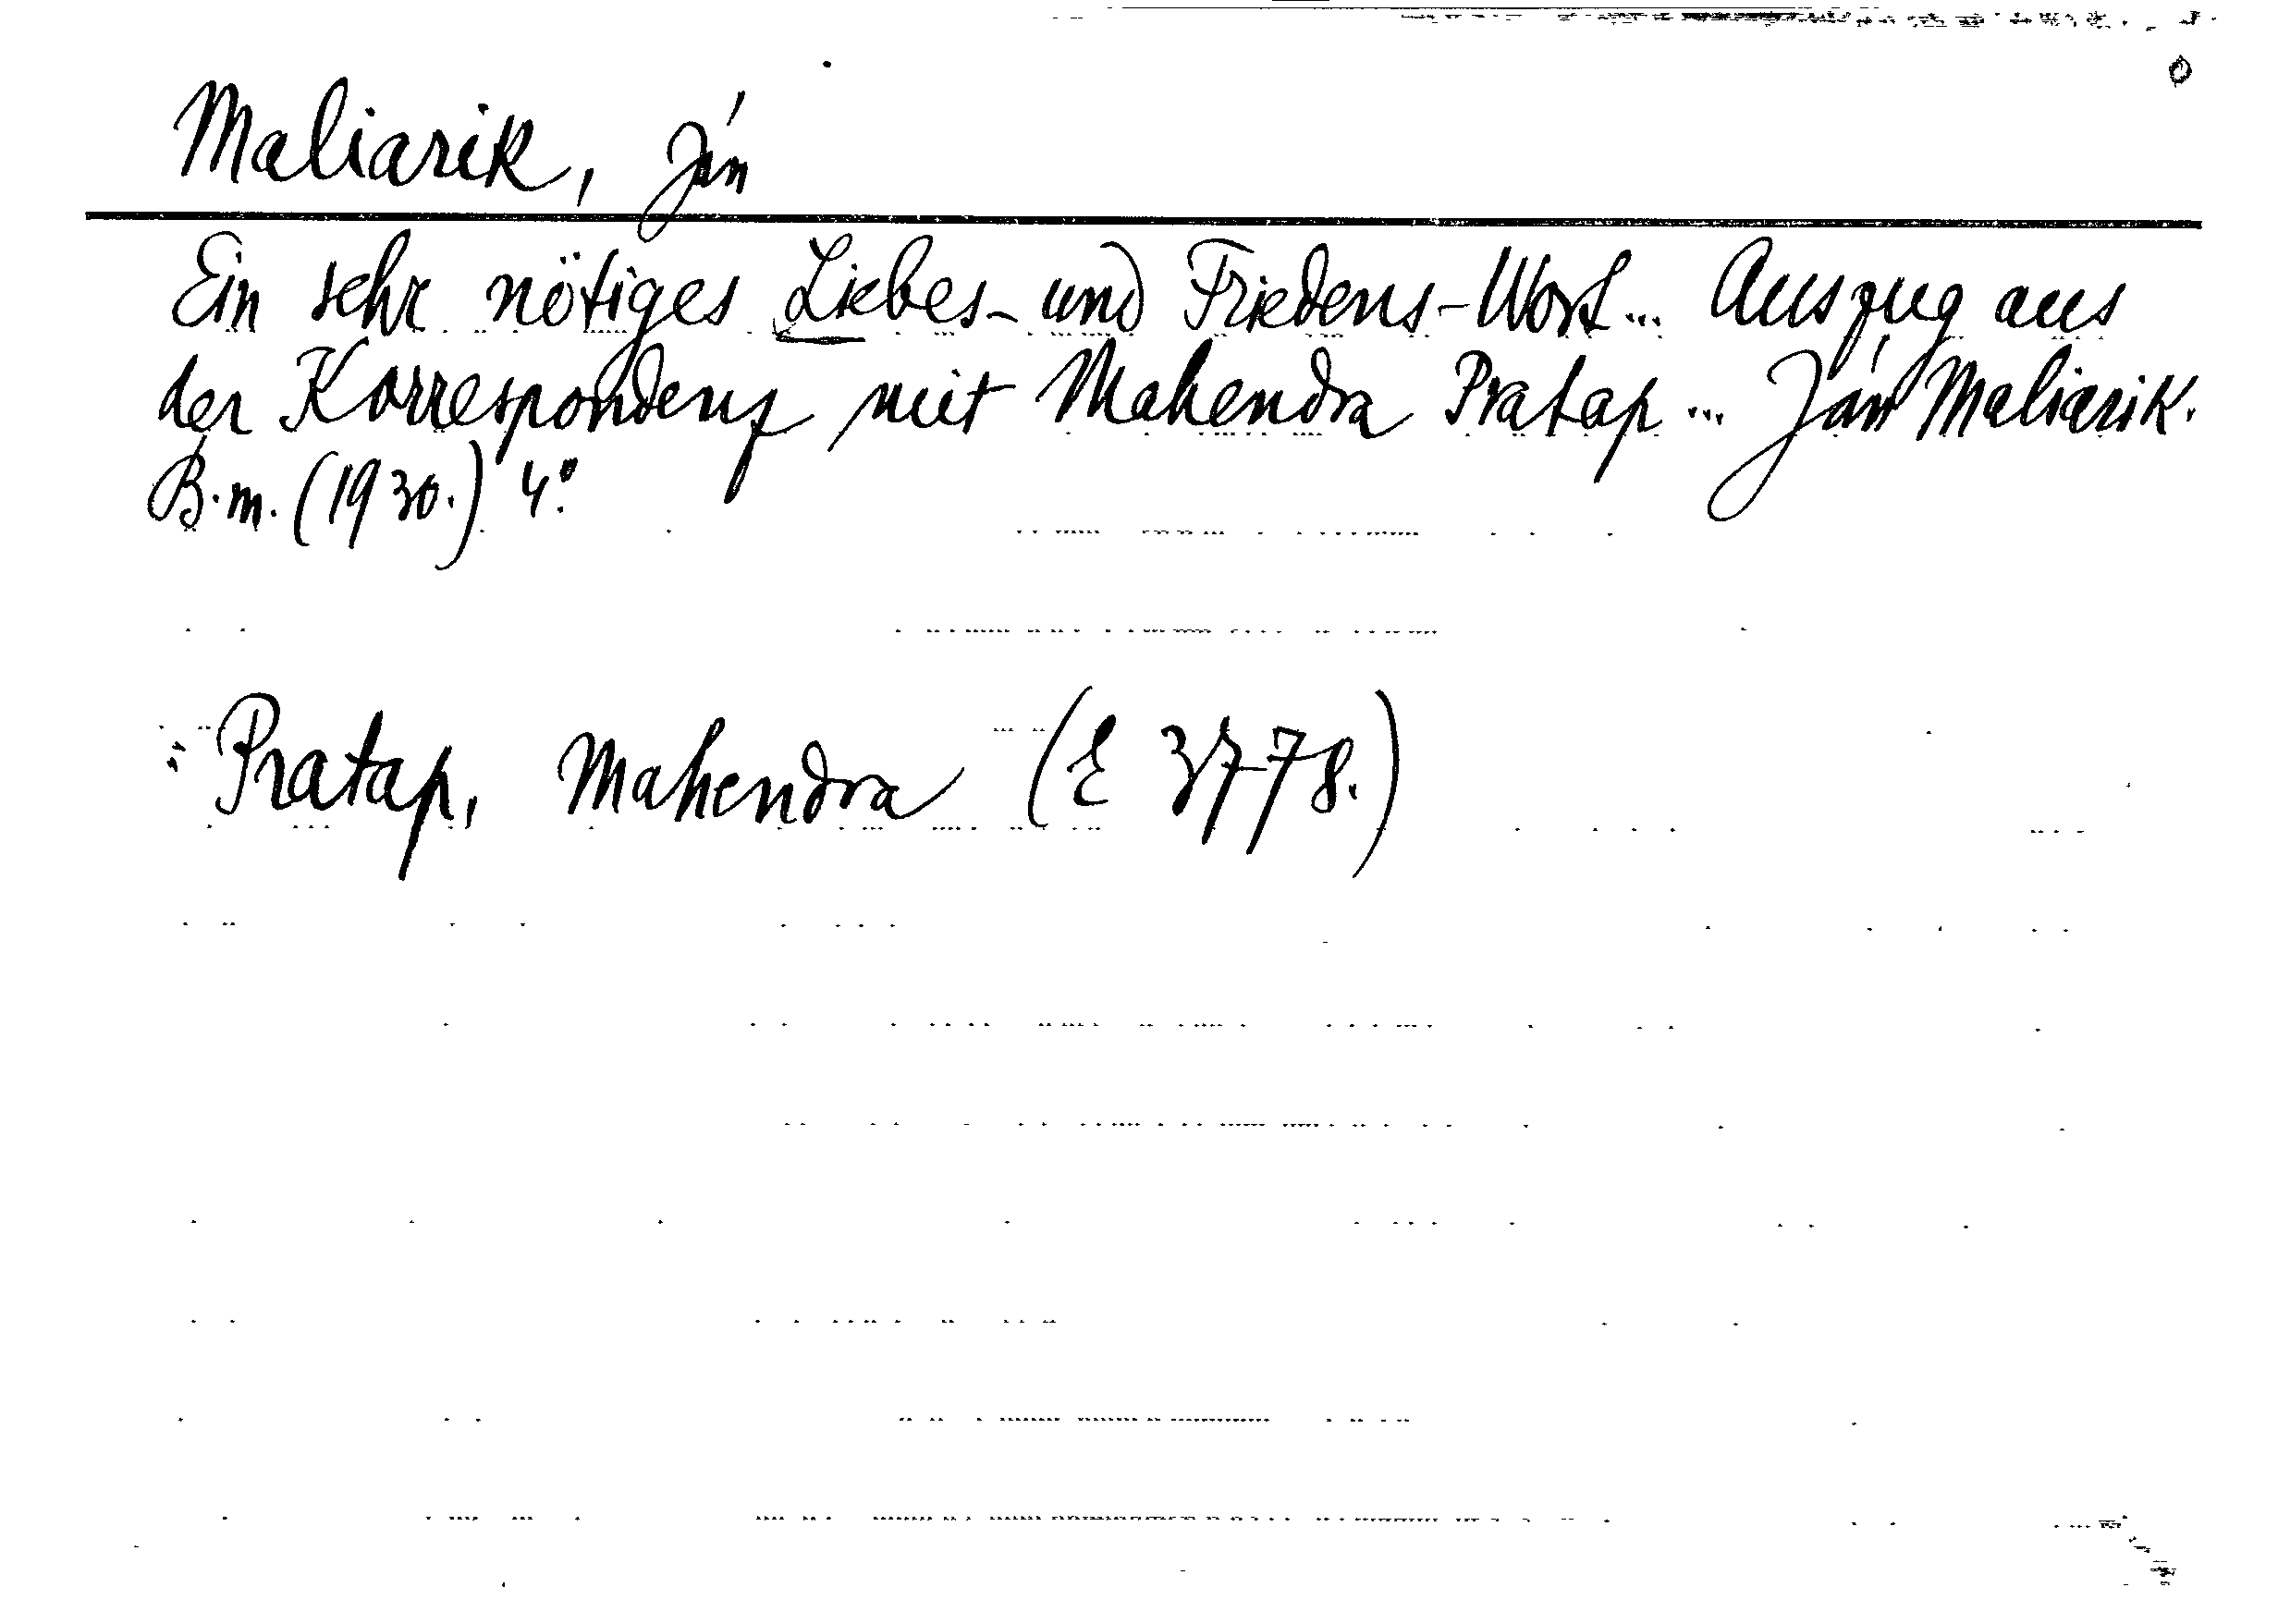 Maliarik, Ján
Ein sehr nötiges Liebes- und Friedens-Wort... Auszug aus
der Korrespondenz mit Mahendra Pratap... Ján Maliarik.
B.m. (1930.) 4°.
Pratap, Mahendra (E 3778.)